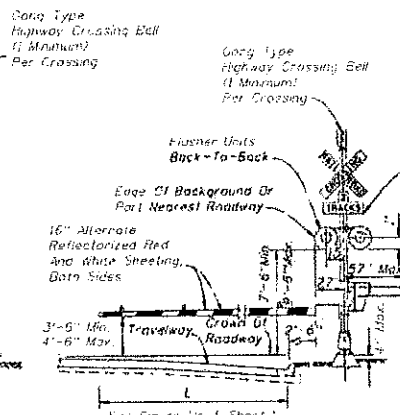 Gong Type
Highway Crossing Bell
(1 Minimum)
Per Crossing
Gong Type
Highway Crossing Bell
(1 Minimum)
Per Crossing
Flasher Units
Back-To-Back
Edge Of Background Or
Part Nearest Roadway
16" Alternate
Reflectorized Red
And White Sheeting,
Both Sides
RAIL
CROSSING
TRACKS
7'-6" Min.
Max.
57" Max
3'-6" Min.
4'-6" Max.
Travelway
Crown Of
Roadway
2'-6"
4" Max.
L